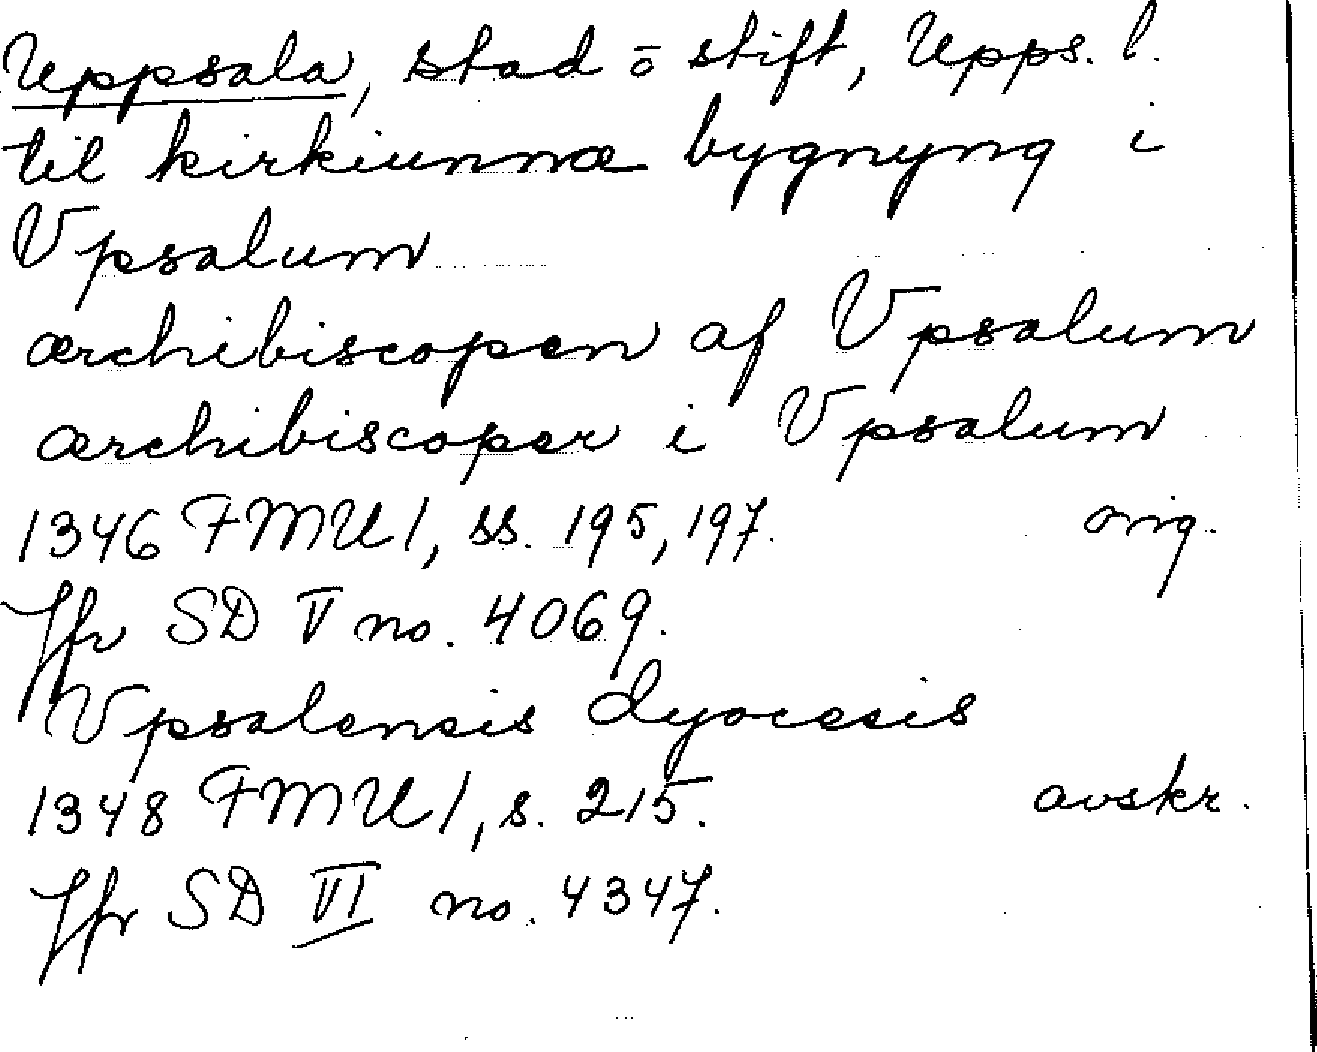 Uppsala, stad ō stift, Upps. l.
til kirkiunnæ bygnyng i
Vpsalum
ærchibiscopen af Vpsalum
ærchibiscoper i Vpsalum
1346 FMU I, ss. 195, 197. orig.
Jfr SD V no. 4069.
Vpsalensis dyocesis
1348 FMU I, s. 215. avskr.
Jfr SD VI no. 4347.